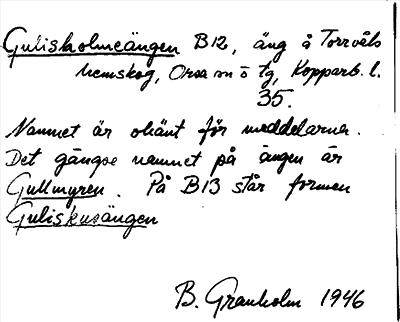 Guliskolmeängen B12, äng å Torrvåls
hemskog, Orsa sn o tg, Kopparb. l.
35.
Namnet är okänt för meddelarna.
Det gängse namnet på ängen är
Gullmyren. På B13 står formen
Guliskusängen
B. Granholm 1946